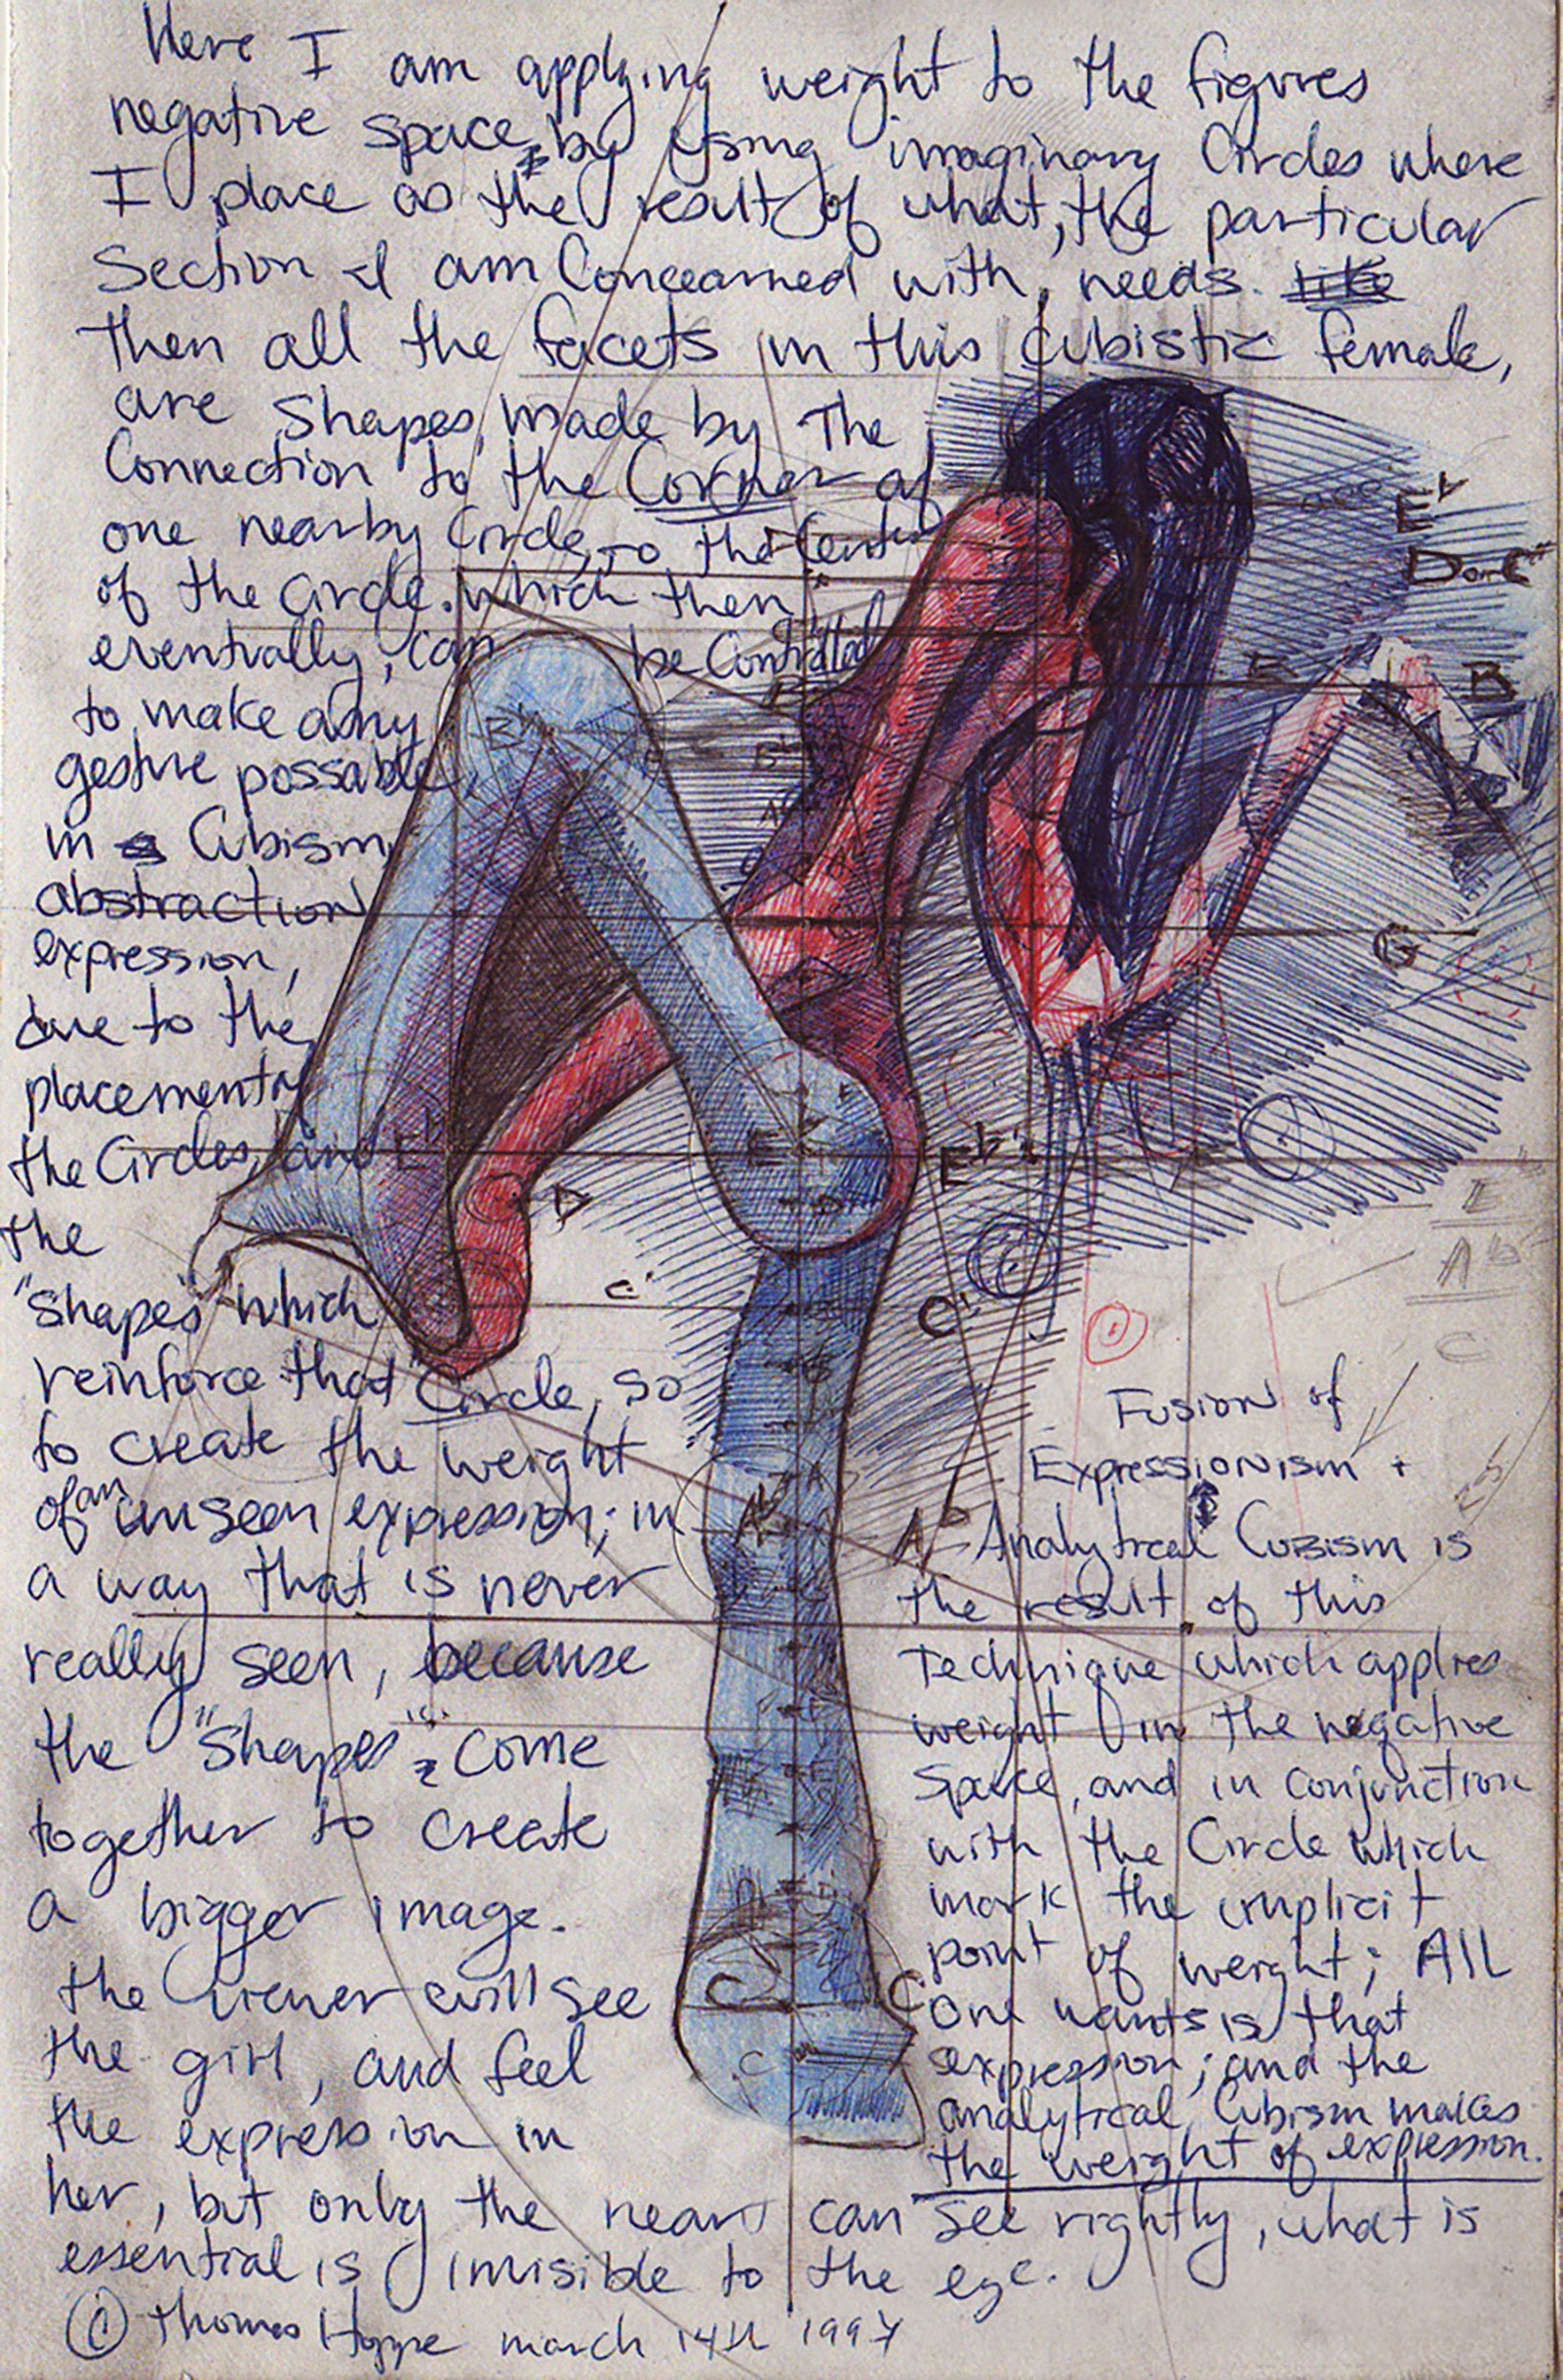 Here I am applying weight to the figures
negative space, by using imaginary Circles where
I place as the result of what, the particular
Section I am Concearned with, needs. like
then all the facets in this Cubistic female,
are shapes, made by The
Connection to the Corner of
one nearby Circle, to the Center
of the Circle. which then,
eventually, can be Controlled
to make any
gesture possable,
in a Cubism,
abstraction
expression,
due to the
placement of
the Circles, and
the
"Shapes" which
reinforce that Circle, so
to create the weight
of an unseen expression; in
a way that is never
really seen, because
the "Shapes" come
together to create
a bigger image.
the viewer will see
the girl, and feel
the expression in
her, but only the heart can see rightly, what is
essential is invisible to the eye.
© Thomas Hoppe march 14th 1997
Fusion of
Expressionism +
Analytical Cubism is
the result of this
Technique which applies
weight in the negative
Space, and in conjunction
with the Circle which
mark the implicit
point of weight; All
one wants is that
expression; and the
analytical Cubism makes
the weight of expression.
Eb
D or C#
B
B
G
Eb
E
Eb
D
D
C#
C#
E
Ab
C
Ab
Ab
C
C
C